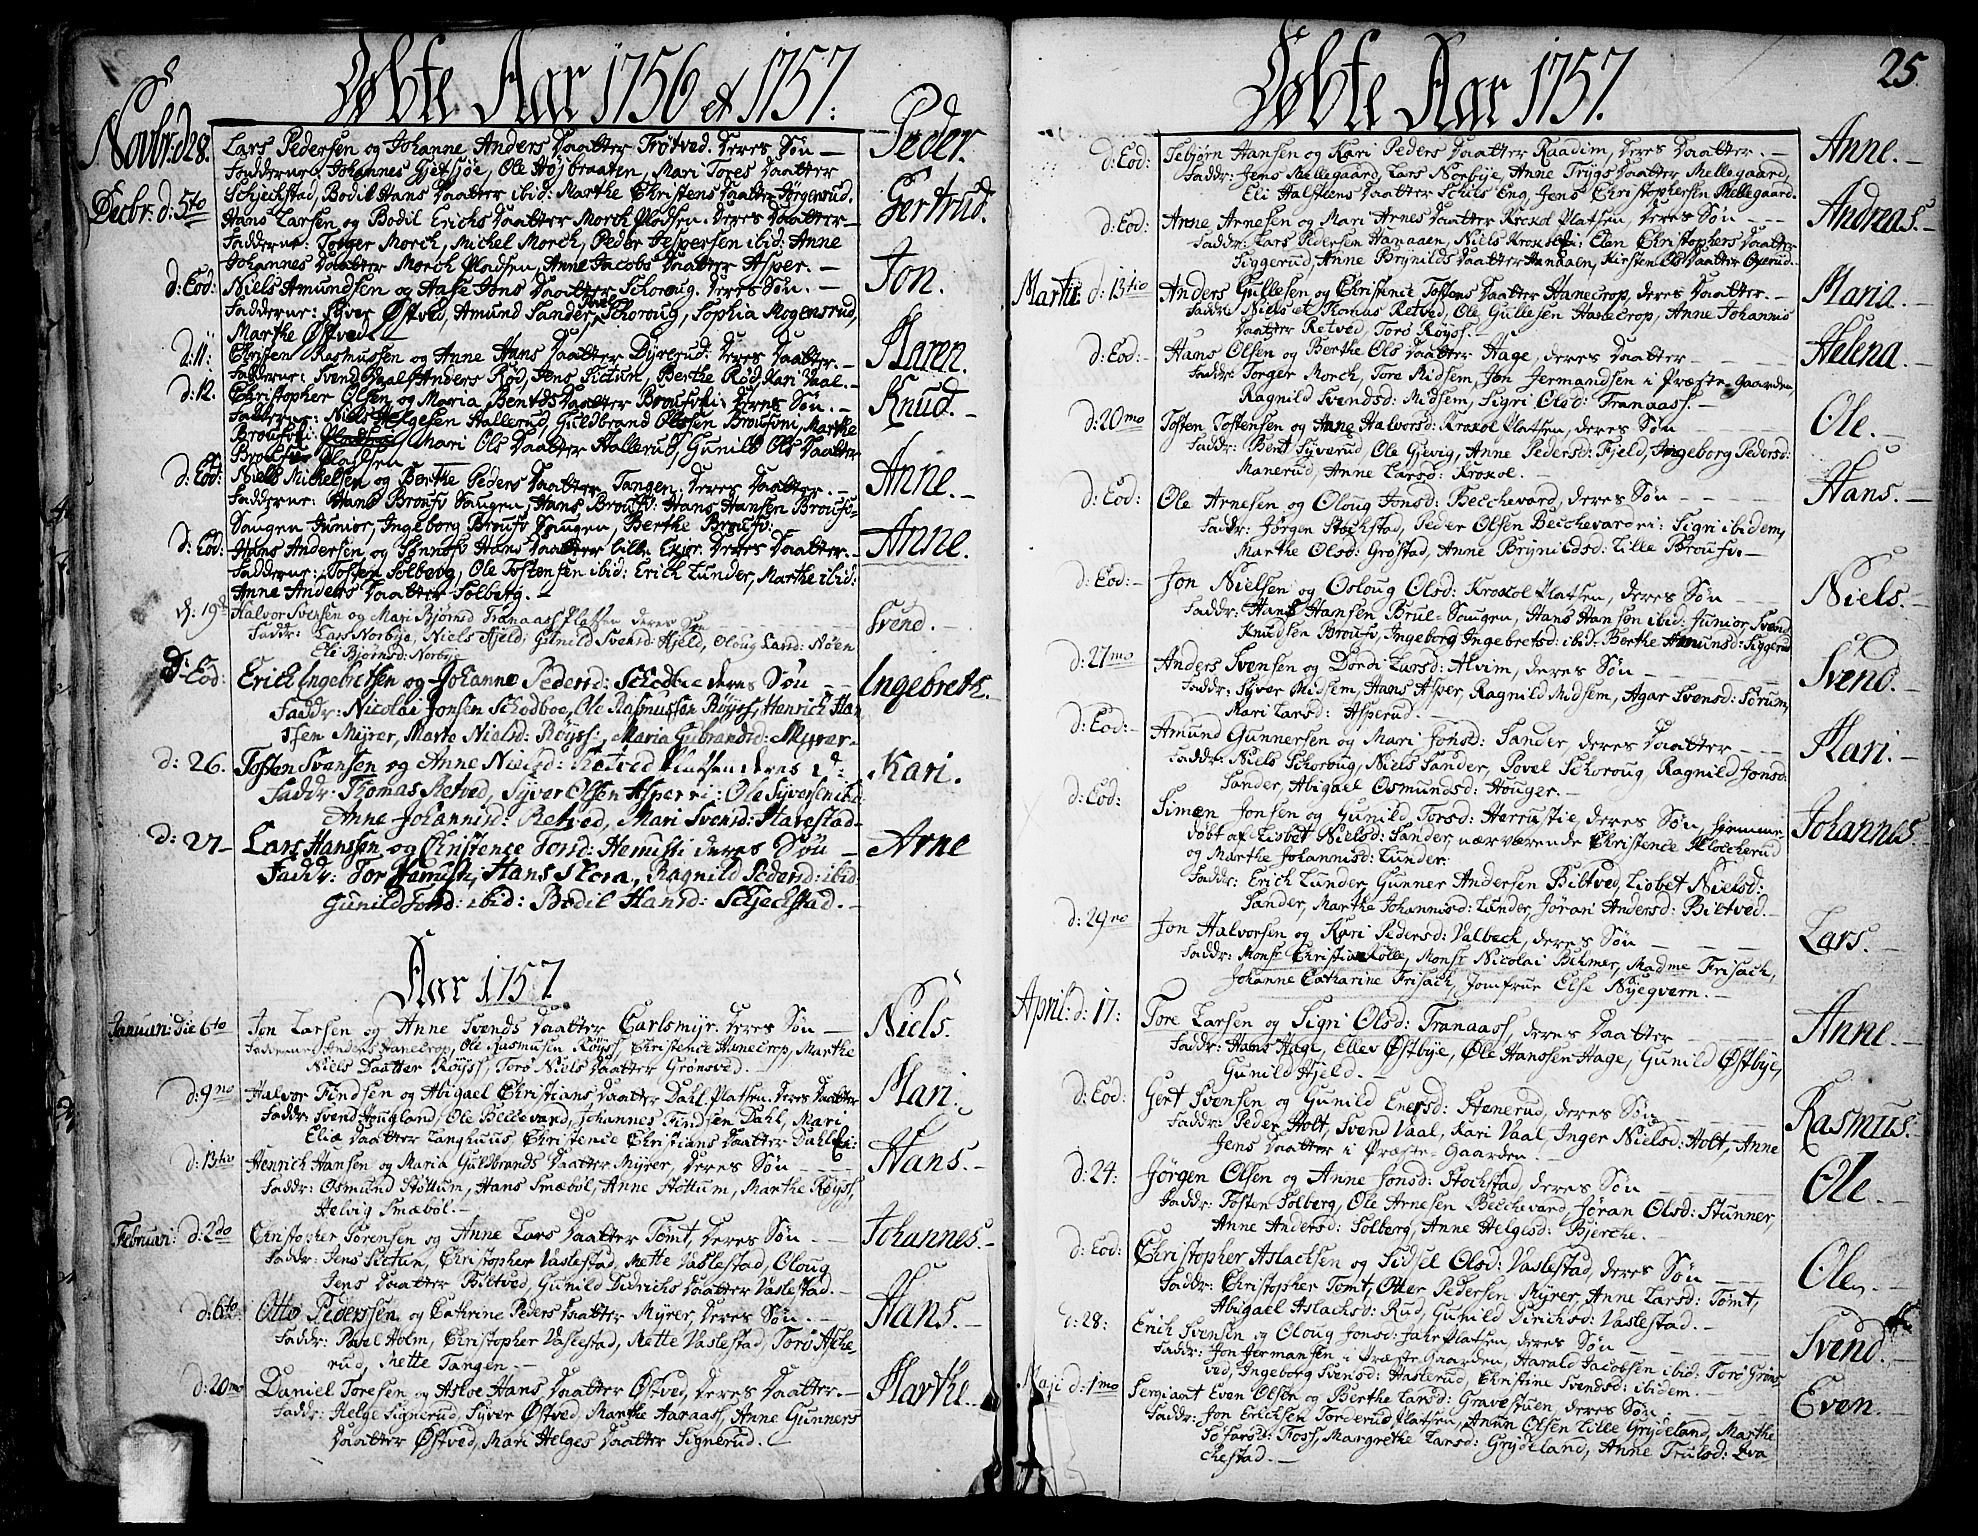 Døbte Aar 1756 et 1757.
Novbr: d28. Lars Pedersen og Johanne Anders Daatter Trøtved. Deres Søn — Peder.
Fadderne: Johannes Gjetsjøe, Ole Højbraaten, Mari Tores Daatter
Schjeikstad, Bodil Hans Daatter ibid: Marthe Christens Daatter Jørgensrud.
Decbr. d: 5to Hans Larsen og Bodil Erichs Daatter Morch Pladsen. Deres Daatter — Gertrud.
Fadderne: Torger Morch, Michel Morch, Peder Jespersen ibid: Anne
Johannes Daatter Morch Pladsen, Anne Jacobs Daatter Asper. —
d: Eod: Niels Amundsen og Aase Jons Daatter Schoroug. Deres Søn. — Jon.
Fadderne: Syver Østved, Amund Sander, Schoroug, Sophia Mogensrud,
Marthe Østved —
d: 11: Christen Rasmussen og Anne Hans Daatter Dyrerud: Deres Daatter. — Maren.
Fadderne: Svend Vaal, Anders Rød, Jens Sictum, Berthe Rød, Kari Vaal. —
d: 12. Christopher Olsen og Maria Bentds Daatter Broufvi: Deres Søn. — Knud. —
Fadderne: Niels Helgesen Hallerud, Guldbrand Olssen Broufvm, Marthe
Broufvi: Mari Ols Daatter Hallerud, Gunild Ols Daatter
Broufvi Pladsen —
d: Eod: Niels Michelsen og Berthe Peders Daatter Tangen: Deres Daatter. — Anne. —
Fadderne: Hans Broufv Saugen, Hans Broufv: Hans Hansen Broufv=
Saugen Junior, Ingeborg Broufv Saugen, Berthe Broufv:
d: Eod: Hans Andersen og Sønnøfv Hans Daatter lille Exior. Deres Daatter. — Anne.
Fadderne: Tosten Solberg, Ole Tostensen ibid: Erich Lunder, Marthe ibid:
Anne Anders Daatter Solberg. —
d. 19d Halvor Svensen og Mari Bjørnsd Tranaass Platsen deres Søn — Svend. —
Faddr: Lars Norbye, Niels Hjeld: Gunild Svensd: Hjeld, Oloug Land: Nøen
Ele Bjørnsd: Norbye
d: Eod: Erich Ingebretsen og Johanne Pedersd: Schodboe deres Søn — Ingebreth. —
Faddr: Nicolai Jonsen Schodboe, Ole Rasmussen Røyss, Henrich Han
ssen Myrer, Marte Nielsd: Røyss:, Maria Gulbrandsd: Myrer —
d: 26. Tosten Svensen og Anne Nielsd: Retved Platsen deres d: Kari.
Faddr: Thomas Retved, Syver Olsen Asperri: Ole Syversen ibd:
Anne Johannisd: Retved, Mari Svensd: Harestad —
d: 27 — Lars Hansen og Christence Torsd: Hemusti deres Søn — Arne
Faddr: Tor Hamusti, Hans Flora, Ragnild Pedersd: ibid:
Gunild Torsd: ibid: Bodil Hansd: Schjeckstad. —
Aar 1757
Januari: die 6to Jon Larsen og Anne Svends Daatter Carlsmyr. Deres Søn — Niels.
Fadderne: Anders Hanecrop, Ole Rasmusen Røyss, Christence Hanecrop, Marthe
Niels Daatter Røyss, Torø Niels Daatter Grønsved.
d: 9no Halvor Findsen og Abigael Christians Daatter Dahl Platsen. Deres Daatter Mari.
Faddr: Svend Hougland, Ole Bellevard, Johannes Findsen Dahl, Mari
Elia Daatter Langhuus, Christence Christians Daatter Dahl Ei:
d: 13tio Henrich Hansen og Maria Guldbrands Daatter Myrer, Deres Søn — Hans. —
Faddr: Osmund Støttum, Hans Smæbøl, Anne Støttum, Marthe Røyss,
Helvig Smæbøl. —
Februari: d: 2do Christopher Sørensen og Anne Lars Daatter Tømt, Deres Søn — Johannes. —
Faddr: Jens Sictun, Christopher Vaslestad, Mette Vaslestad, Oloug
Jens Daatter Biltved, Gunild Didrichs Daatter Vaslestad. —
d: 6to Otto Pederssen og Cathrine Peders Daatter Myrer, Deres Søn. — Hans. —
Faddr: Povel Holm, Christopher Vaslestad, Mette Vaslestad, Torø Asche=
rud, Mette Tangen. —
d: 20mo Daniel Toresen og Asloe Hans Daatter Østved, Deres Daatter. — Marthe. —
Faddr: Helge Signerud, Syver Østved, Marthe Aaraass, Anne Gunners
Daatter Østved, Mari Helges Daatter Signerud. —
Døbte Aar 1757. 25.
d: Eod: Tebjørn Hansen og Kari Peders Daatter Raadim, Deres Daatter. — Anne. —
Faddr: Jens Mellegaard, Lars Norbye, Anne Trygs Daatter Mellegaard,
Eli Halsteens Daatter Schuls Eng, Jens Christophersen Mellegaard.
d: Eod: Arne Arnesen og Mari Arnes Daatter Kroxol Platsen, Deres Søn — Andreas. —
Faddr: Lars Pedersen Hanaaen, Niels Kroxol Ei: Elen Christophers Daatter
Siggerud, Anne Brynilds Daatter Hanaaen, Kirsten Ols Daatter Oxerud. —
Martii d: 13tio Anders Gullesen og Christence Tostens Daatter Hanecrop, deres Daatter. — Maria. —
Faddr: Niels et Thomas Retved, Ole Gullesen Hanecrop, Anne Johannis
Daatter Retved, Torø Røyss: —
d: Eod: — Hans Olsen og Berthe Ols Daatter Hage, deres Daatter — Helena.
Faddr: Torger Morch, Tore Midsem, Jon Jermandsen i Præste-Gaarden,
Ragnild Svendsd: Midsem, Sigri Olsd: Tranaass. —
d: 20mo Tosten Tostensen og Anne Halvorsd: Kroxol Platsen, deres Søn — Ole. —
Faddr: Bent Syverud, Ole Gjevig, Anne Pedersd: Fjeld, Ingeborg Pedersd:
Manerud, Anne Larsd: Kroxol. —
d: Eod: Ole Arnesen og Oloug Jonsd: Becchevard, deres Søn — Hans. —
Faddr: Jørgen Stochstad, Peder Olsen Becchevard ei: Sigri ibidem,
Marthe Olsd: Grøstad, Anne Brynildsd: Lille Broufv. —
d: Eod: — Jon Nielsen og Osloug Olsd: Kroxol Platsen, deres Søn — Niels. —
Faddr: Hans Hansen Brue-Saugen, Hans Hansen ibid: Junior, Svend
Knudsen Broufv, Ingeborg Ingebretsd: ibid: Berthe Amunsd: Siggerud
d: 27mo Anders Svensen og Dordi Larsd: Alvim, deres Søn — Svend. —
Faddr: Syver Midsem, Hans Asper, Ragnild Midsem, Agar Svensd: Sørum,
Kari Larsd: Asperud. —
d: Eod: — Amund Gunnersen og Mari Jonsd: Sander, deres Daatter — Mari. —
Faddr: Niels Schoroug, Niels Sander, Povel Schoroug, Ragnild Jonsd:
Sander, Abigael Osmundsd: Houger. —
d: Eod: Simen Jonsen og Gunild Torsd: Herrustie, deres Søn, hjemme= Johannes.
døbt af Lisbet Nielsd: Sander, nærværende Christence Klocherud
og Marthe Johannisd: Lunder:
Faddr: Erich Lunder, Gunner Andersen Biltved, Lisbet Nielsd:
Sander, Marthe Johannisd: Lunder, Jørari Andersd: Biltved. —
d: 29no Jon Halvorsen og Kari Pedersd: Valbech, deres Søn — Lars. —
Faddr: Monsr Christian Kolle, Monsr Nicolai Bihmer, Madme Frisach,
Johanne Catharine Frisach, Jomfrue Else Nyegvern. —
April: d: 17. Tore Larsen og Sigri Olsd: Tranaass, deres Daatter — Anne. —
Faddr: Hans Hage, Ellev Østbye, Ole Hanssen Hage, Gunild Østbye,
Gunild Hjeld. —
d: Eod: Gert Svensen og Gunild Enersd: Stenerud, deres Søn — Rasmus.
Faddr: Peder Holt, Svend Vaal, Kari Vaal, Inger Nielsd: Holt, Anne
Jens Daatter i Præste-Gaarden. —
d: 24. Jørgen Olsen og Anne Jonsd: Stochstad, deres Søn — Ole. —
Faddr: Tosten Solberg, Ole Arnesen Becchevard, Jøran Olsd: Stunner,
Anne Andersd: Solberg, Anne Helgesd: Bjerche. —
d: Eod: Christopher Aslachsen og Sidsel Olsd: Vaslestad, deres Søn — Ole. —
Faddr: Christopher Tømt, Otter Pedersen Myrer, Anne Larsd: Tømt,
Abigael Aslachsd: Rud, Gunild Dirichsd: Vaslestad. —
d: 28: Erich Svensen og Oloug Jonsd: Jahr Platsen, deres Søn — Svend. —
Faddr: Jon Jermansen i Præste Gaarden, Harald Jacobsen ibid: Torø Grøns
ved, Ingeborg Svensd: Haslerud, Christine Svendsd: ibidem. —
Maji d: 1mo Sergiant Even Olsen og Berthe Larsd: Gravestuen, deres Søn. Even. —
Faddr: Jon Erichsen Torderud Platsen, Anun Olsen Lille Grydeland, Marthe
Tofarsd: Foss, Margrethe Larsd: Grydeland, Anne Trulsd: Eva
chestad. —